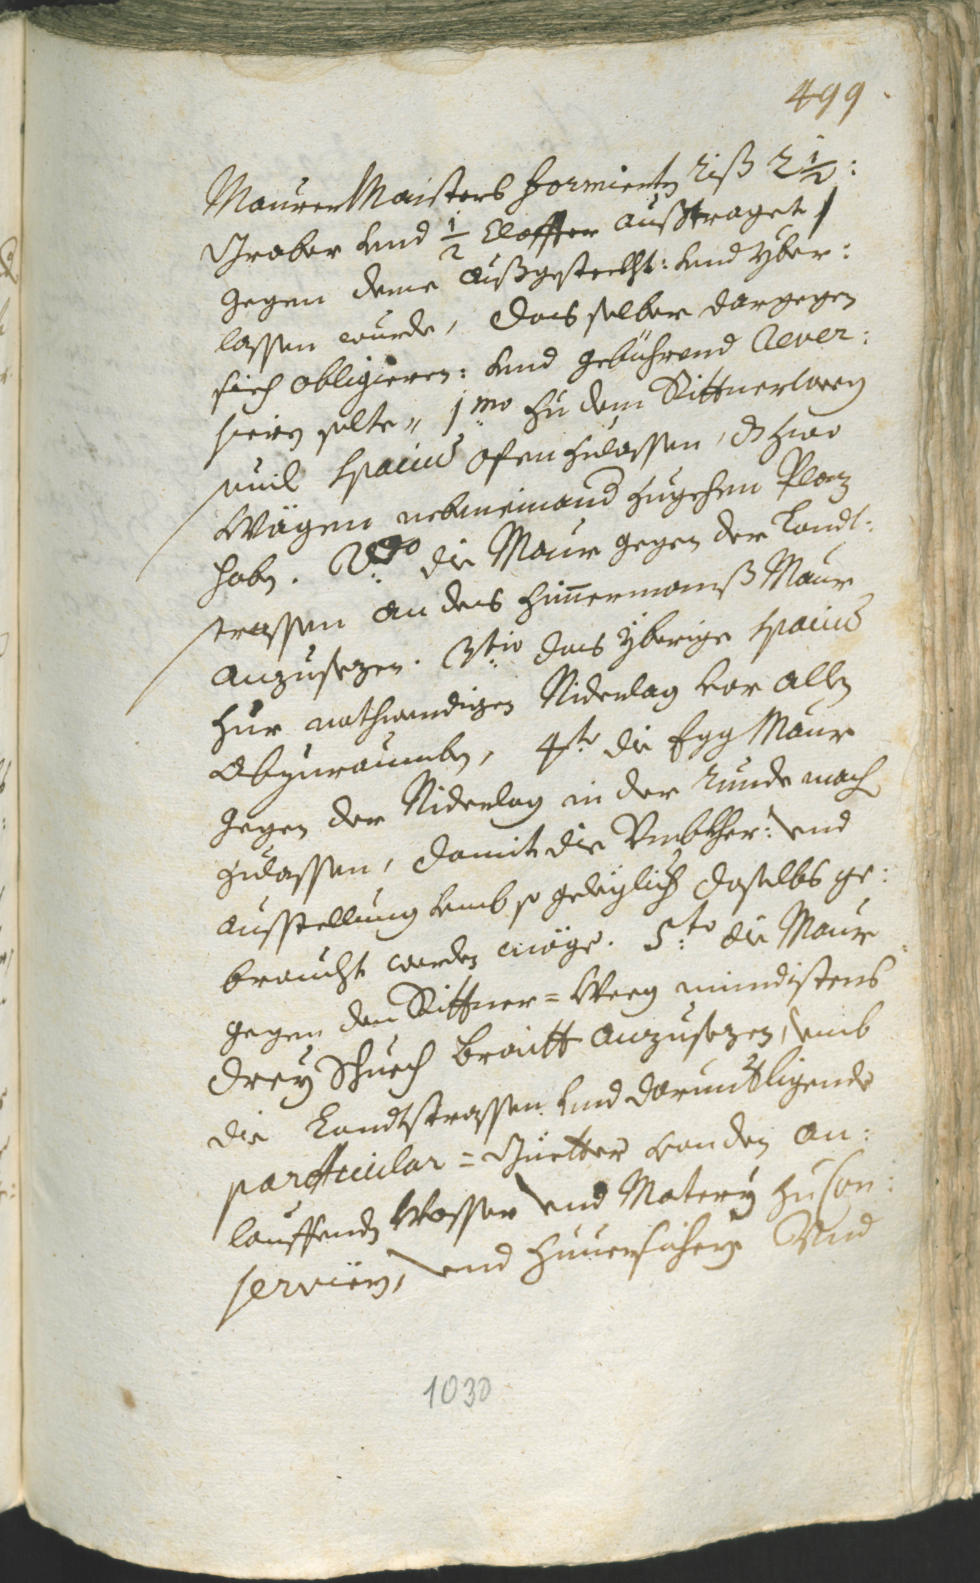 499.
Maurer Maisters formierten Riß 2 1/2:
Graber und 1/2 Claffter außtraget /
gegen deme außgestelcht: und yber:
lassen wurde, das selber dargegen
sich obligieren: und gebührend Rever:
sieren solte, 1.mo zu dem Rittnerweeg
vuil spacium ofen zulassen, dz zwo
Wägen nebeneinand zugehen Plaz
haben. 2.do die Maur gegen der Landt:
strassen an des Zimmermanß Maur
anzusezen. 3.tio das yberige spacium
zur nothwendigen Niderlag vor allen
abzuraumben, 4.to die Egg Maur
gegen der Niderlag in der Runde mach
zulassen, damit die Umbkher: und
ausstellung umb so gelöglich daselbs ge:
braucht werden möge. 5.to die Maur
gegen den Rittner=Weeg mindistens
drey Schuech braitt anzusezen, umb
die Landtstrassen und darunt ligende
particular=Güetter von den an:
lauffenden Wasser und Matery zu con:
servieren, und zuuersichern Und
1030